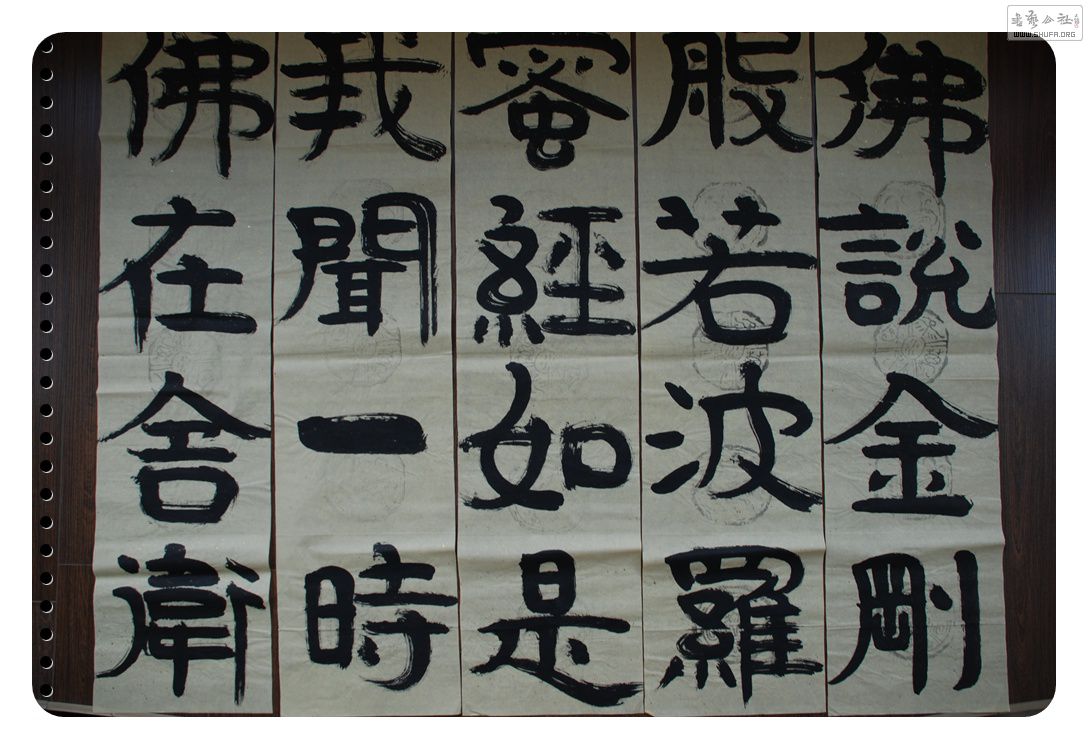 佛說金剛
般若波羅
蜜經如是
我聞一時
佛在舍衛
书艺公社
WWW.SHUFA.ORG